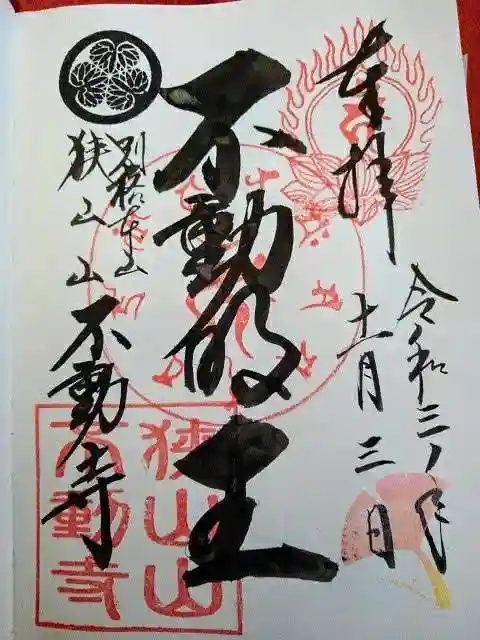 奉拝
令和三年
十一月三日
不動明王
別格本山
狭山山不動寺
狭山山
不動寺